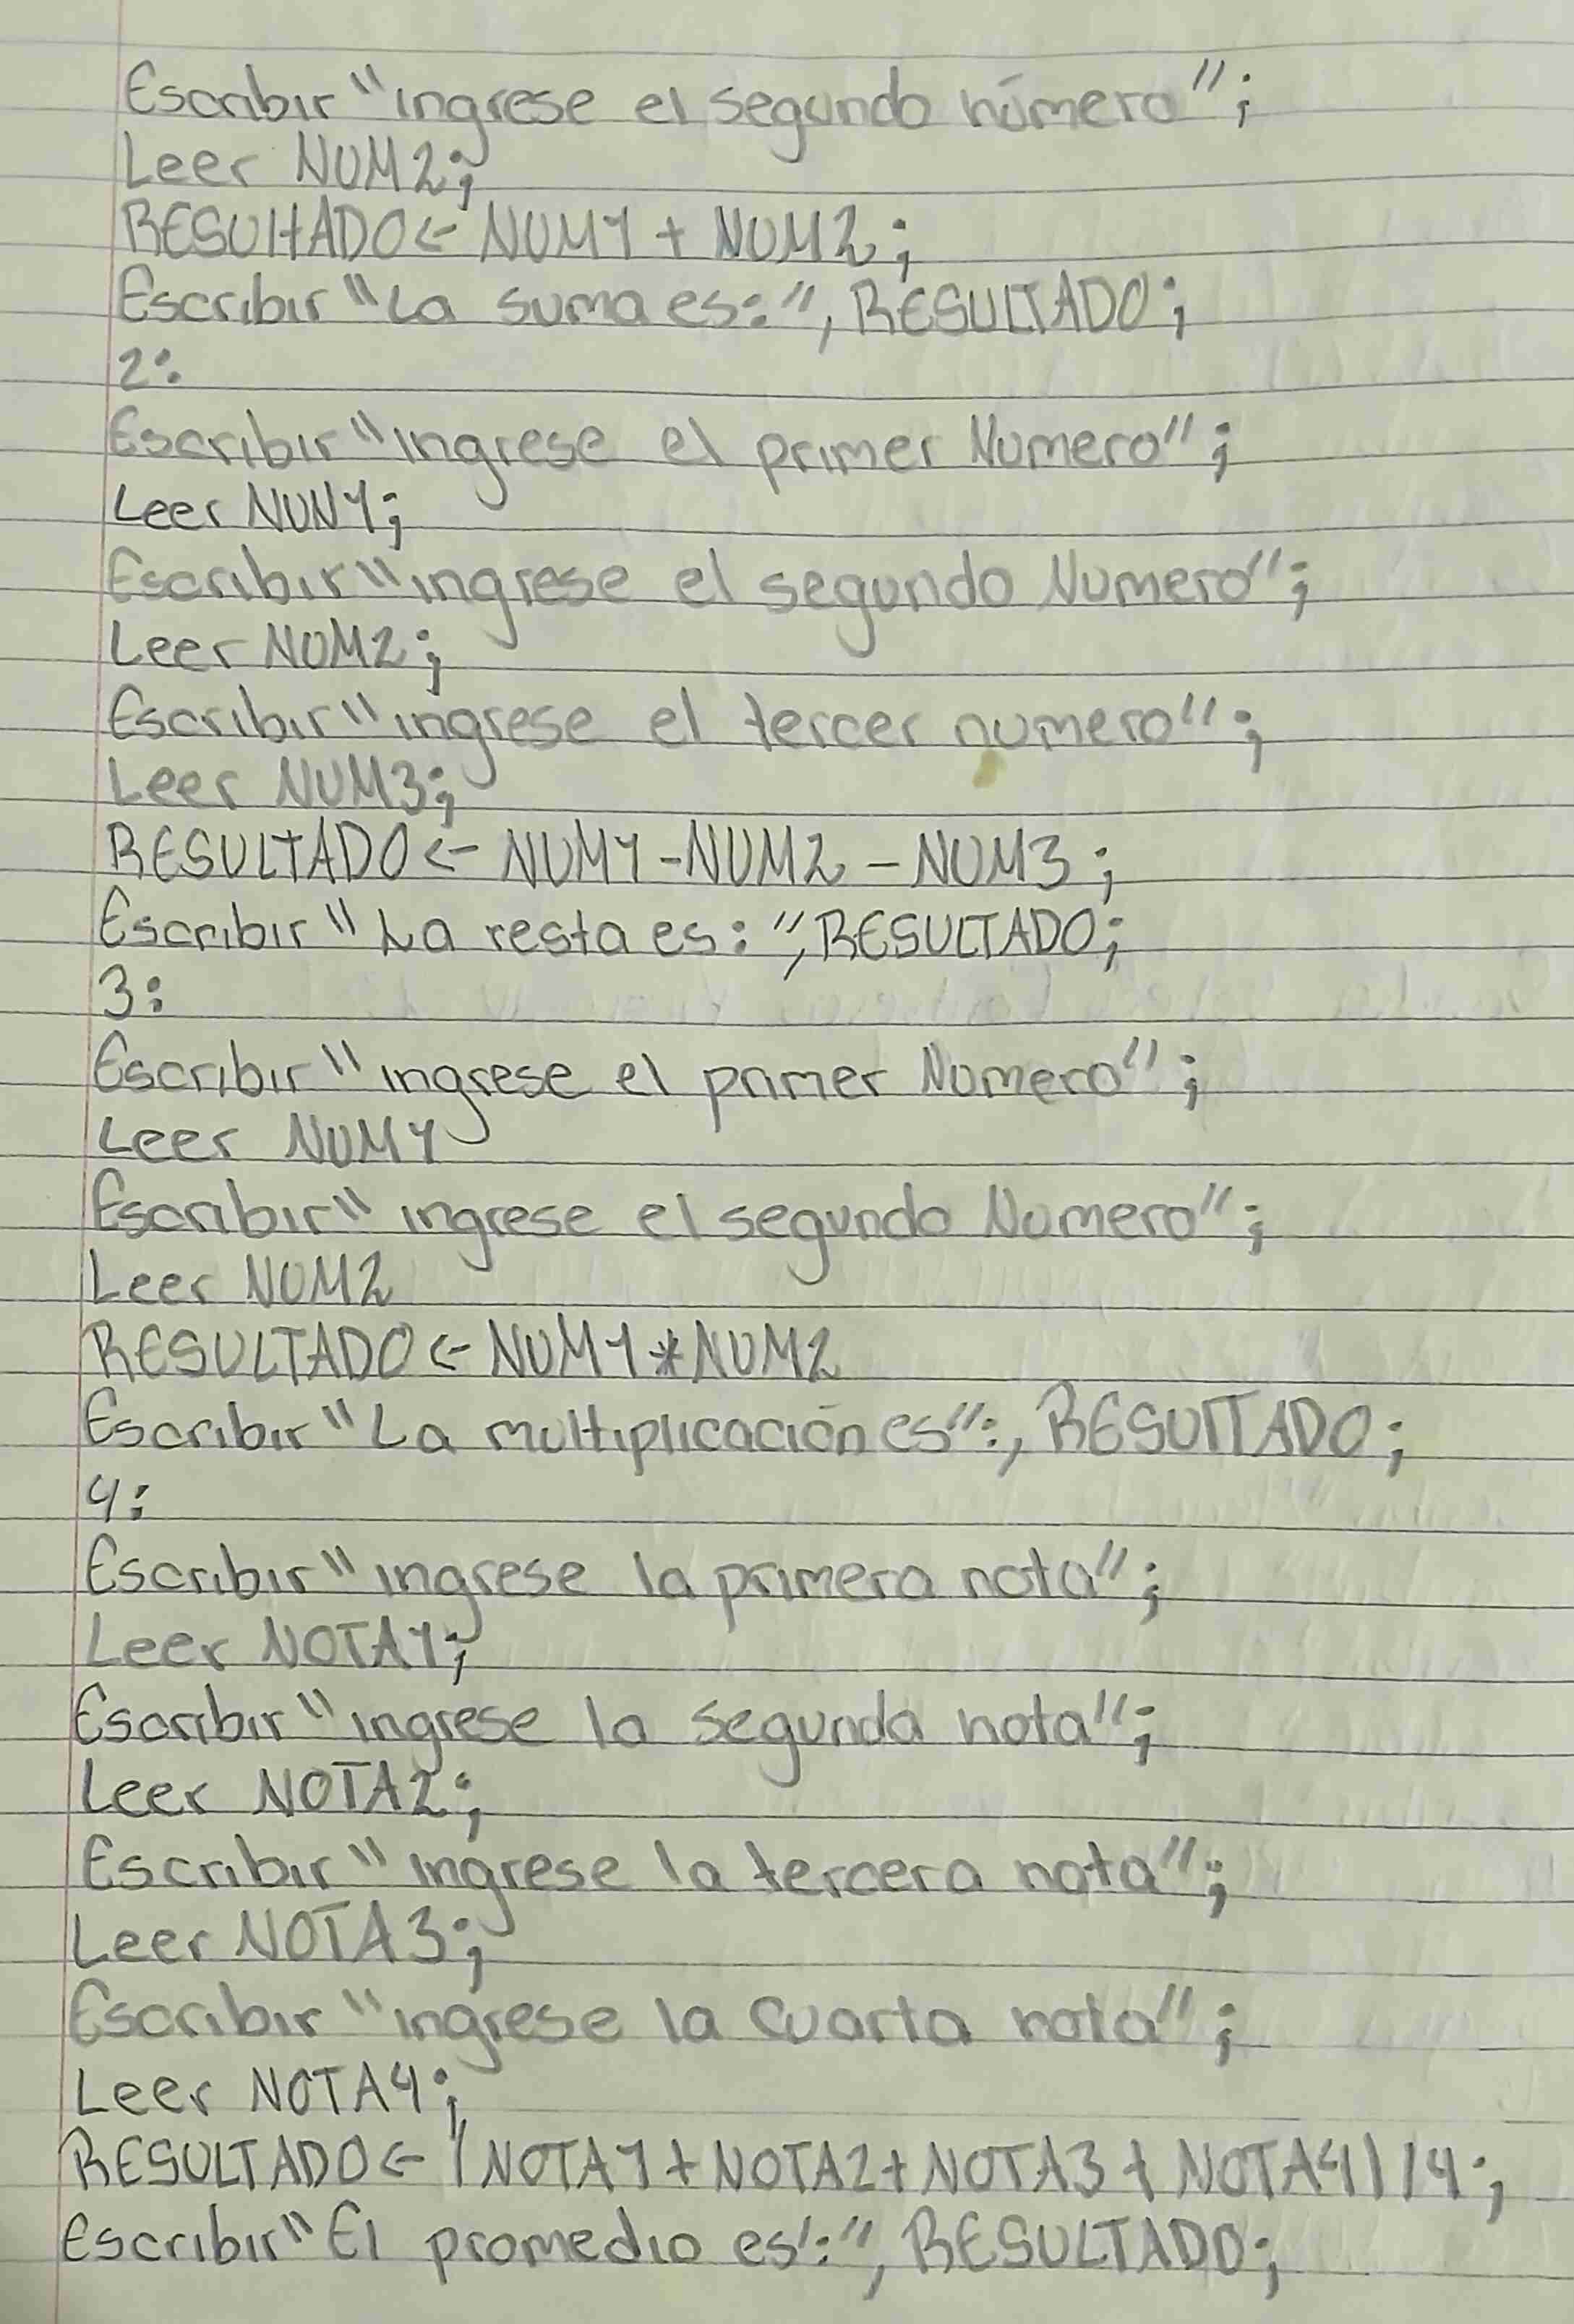 Escribir "ingrese el segundo número";
Leer NUM2;
RESULTADO <- NUM1 + NUM2;
Escribir "La suma es:", RESULTADO;
2:
Escribir "ingrese el primer Numero";
Leer NUN1;
Escribir "ingrese el segundo Numero";
Leer NUM2;
Escribir "ingrese el tercer numero";
Leer NUM3;
RESULTADO <- NUM1 - NUM2 - NUM3;
Escribir "La resta es: ", RESULTADO;
3:
Escribir "ingrese el primer Numero";
Leer NUM1
Escribir "ingrese el segundo Numero";
Leer NUM2
RESULTADO <- NUM1 * NUM2
Escribir "La multiplicación es":, RESULTADO;
4:
Escribir "ingrese la primera nota";
Leer NOTA1;
Escribir "ingrese la segunda nota";
Leer NOTA2;
Escribir "ingrese la tercera nota";
Leer NOTA3;
Escribir "ingrese la cuarta nota";
Leer NOTA4;
RESULTADO <- (NOTA1 + NOTA2 + NOTA3 + NOTA4) / 4;
Escribir "El promedio es':", RESULTADO;